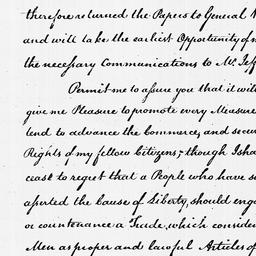 therefore returned the Papers to General
and will take the earliest Opportunity of
the necessary Communications to Mr. Jeff
Permit me to assure you that it will
give me Pleasure to promote every Measure
tend to advance the Commerce, and secur
Rights of my fellow Citizens; though I sha
cease to regret that a People who have so
asserted the cause of Liberty, should enga
or countenance a Trade, which consider
Men as proper and lawful Articles of